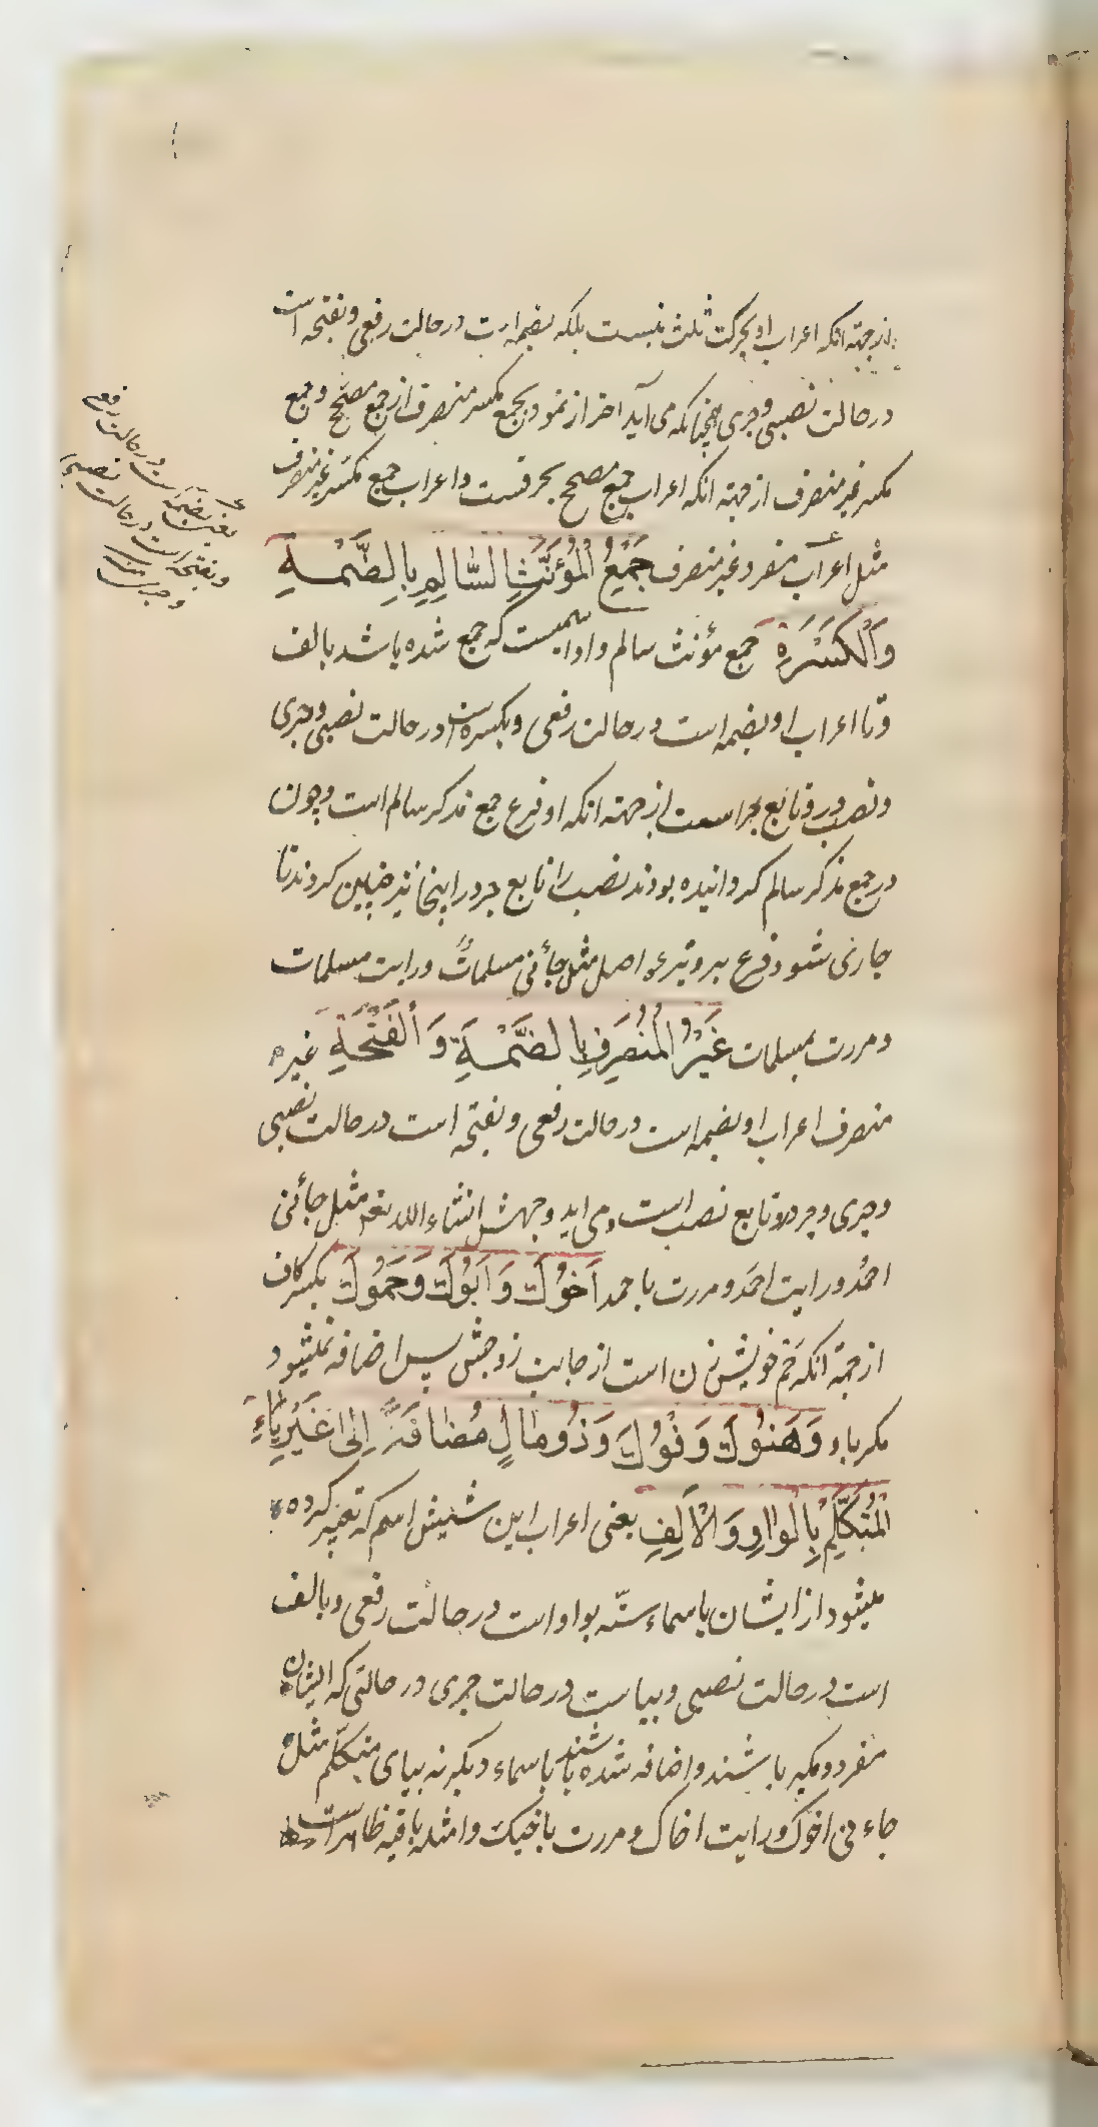 از جهته انکه اعراب او بحرکت ثلث نیست بلکه بضمه است در حالت رفعی و بفتحه است
در حالت نصبی و جری همچنانکه می آید احتراز نمود بجمع مکسر منصرف از جمع مصحح و جمع
مکسر غیر منصرف از جهته انکه اعراب جمع مصحح بحرفست و اعراب جمع مکسر غیر منصرف
مثل اعراب مفرد غیر منصرف جَمْعُ الْمُؤَنَّثِ السَّالِمِ بِالضَّمَّةِ
وَالْكَسْرَةِ جمع مؤنث سالم و او اسمیست که جمع شده باشد بالف
و تا اعراب او بضمه است در حالت رفعی و بکسره است در حالت نصبی و جری
و نصب درو تابع جر است از جهته انکه او فرع جمع مذکر سالم است و چون
در جمع مذکر سالم کردانیده بودند نصب را تابع جر در اینجا نیز چنین کردند تا
جاری شود فرع بر وتیره اصل مثل جأنی مسلماتٌ و رایت مسلمات
و مررت بمسلمات غَيْرُ الْمُنْصَرِفِ بِالضَّمَّةِ وَالْفَتْحَةِ غیر
منصرف اعراب او بضمه است در حالت رفعی و بفتحه است در حالت نصبی
و جری و جر درو تابع نصب است و می اید وجهش انشاء الله تعه مثل جأنی
احمدُ و رایت احمدَ و مررت باحمد اَخُوْكَ وَاَبُوْكَ وَحَمُوْكِ بکسر کاف
از جهته انکه حم خویش زن است از جانب زوجش پس اضافه نمیشود
مکر باو وَهَنُوْكَ وَفُوْكَ وَذُوْ مَالٍ مُضَافَةً اِلىٰ غَيْرِ يَاءِ
الْمُتَكَلِّمِ بِالْوَاوِ وَالْاَلِفِ یعنی اعراب این شش اسم که تعبیر کرده
میشود از ایشان باسماء ستّه بواو است در حالت رفعی و بالف
است در حالت نصبی و بیاست در حالت جری در حالتی که ایشان
مفرد و مکبر باشند و اضافه شده باشند باسماء دیکر نه بیای متکلّم مثل
جاءنی اخوک و رایت اخاک و مررت باخیک و امثله باقیه ظاهر است
یعنی بضمه است در حالت رفع
و بفتحه است در حالت نصبی
و جری